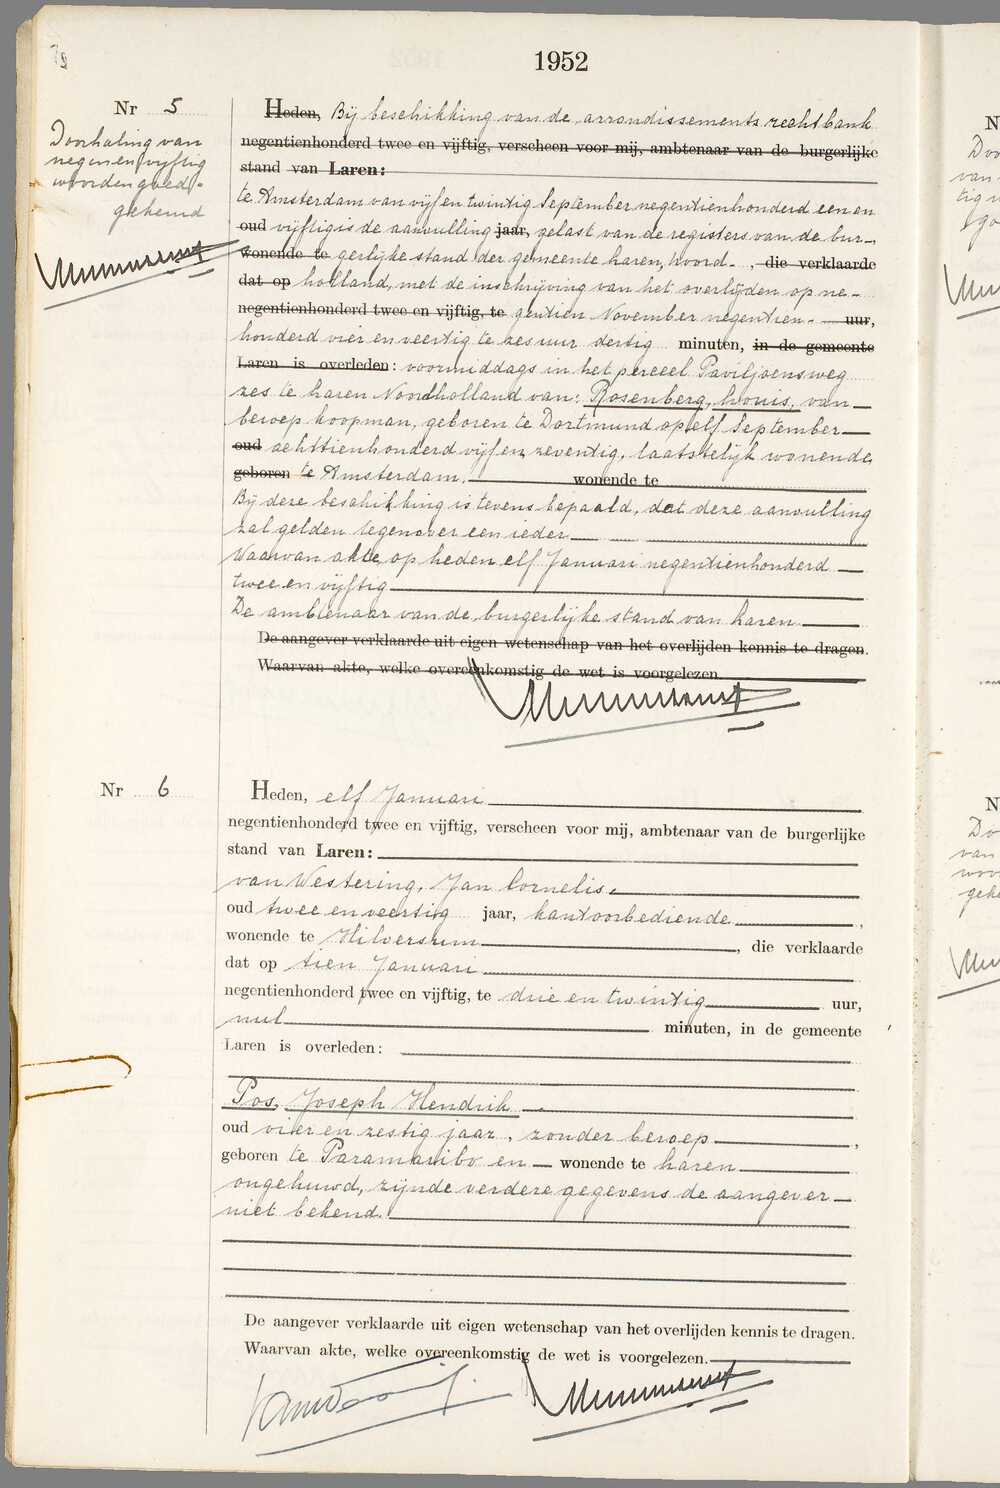 1952
Nr 5
Doorhaling van
negenenvijftig
woorden goed-
gekeurd
Heden, Bij beschikking van de arrondissements rechtbank
negentienhonderd twee en vijftig, verscheen voor mij, ambtenaar van de burgerlijke
stand van Laren:
te Amsterdam van vijf en twintig September negentienhonderd een en
oud vijftig is de aanvulling jaar, gelast van de registers van de bur-
wonende te gerlijke stand der gemeente Laren, Noord- , die verklaarde
dat op holland, met de inschrijving van het overlijden op ne-
negentienhonderd twee en vijftig, te gentien November negentien- uur,
honderd vier en veertig te zes uur dertig minuten, in de gemeente
Laren is overleden: voormiddags in het perceel Paviljoensweg
zes te Laren Noordholland van: Rosenberg, Louis, van
beroep koopman, geboren te Dortmund op elf September
oud achttienhonderd vijf en zeventig, laatstelijk wonende
geboren te Amsterdam. wonende te
Bij deze beschikking is tevens bepaald, dat deze aanvulling
zal gelden tegenover een ieder
Waarvan akte, op heden elf Januari negentienhonderd
twee en vijftig
De ambtenaar van de burgerlijke stand van Laren
De aangever verklaarde uit eigen wetenschap van het overlijden kennis te dragen.
Waarvan akte, welke overeenkomstig de wet is voorgelezen.
Nr 6
Heden, elf Januari
negentienhonderd twee en vijftig, verscheen voor mij, ambtenaar van de burgerlijke
stand van Laren:
van Westering, Jan Cornelis,
oud twee en veertig jaar, kantoorbediende ,
wonende te Hilversum , die verklaarde
dat op tien Januari
negentienhonderd twee en vijftig, te drie en twintig uur,
nul minuten, in de gemeente
Laren is overleden:
Pos, Joseph Hendrik
oud vier en zestig jaar, zonder beroep ,
geboren te Paramaribo en wonende te Laren
ongehuwd, zijnde verdere gegevens de aangever
niet bekend.
De aangever verklaarde uit eigen wetenschap van het overlijden kennis te dragen.
Waarvan akte, welke overeenkomstig de wet is voorgelezen.